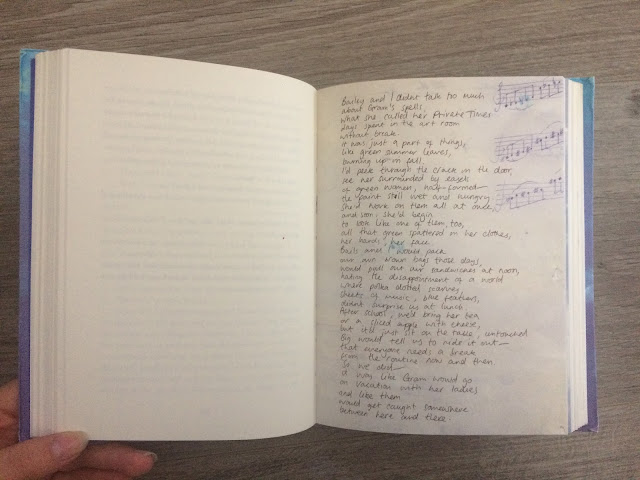 Bailey and I didnt talk too much
about Gram's spells,
what she called her Private Times
days spent in the art room
without break.
it was just a part of things,
like green summer leaves,
burning up in fall.
I'd peek through the crack in the door,
see her surrounded by easels
of green women, half-formed—
the paint still wet and hungry.
she'd work on them all at once,
and soon, she'd begin
to look like one of them, too,
all that green spattered on her clothes,
her hands, her face.
Bails and I would pack
our own brown bags those days,
would pull out our sandwiches at noon,
hating the disappointment of a world
where polka dotted scarves,
sheets of music, blue feathers,
didnt surprise us at lunch.
After school, we'd bring her tea
or a sliced apple with cheese,
but it'd just sit on the table, untouched.
Big would tell us to ride it out—
that everyone needs a break
from the routine now and then.
So we did—
it was like Gram would go
on vacation with her ladies
and like them
would get caught somewhere
between here and there.